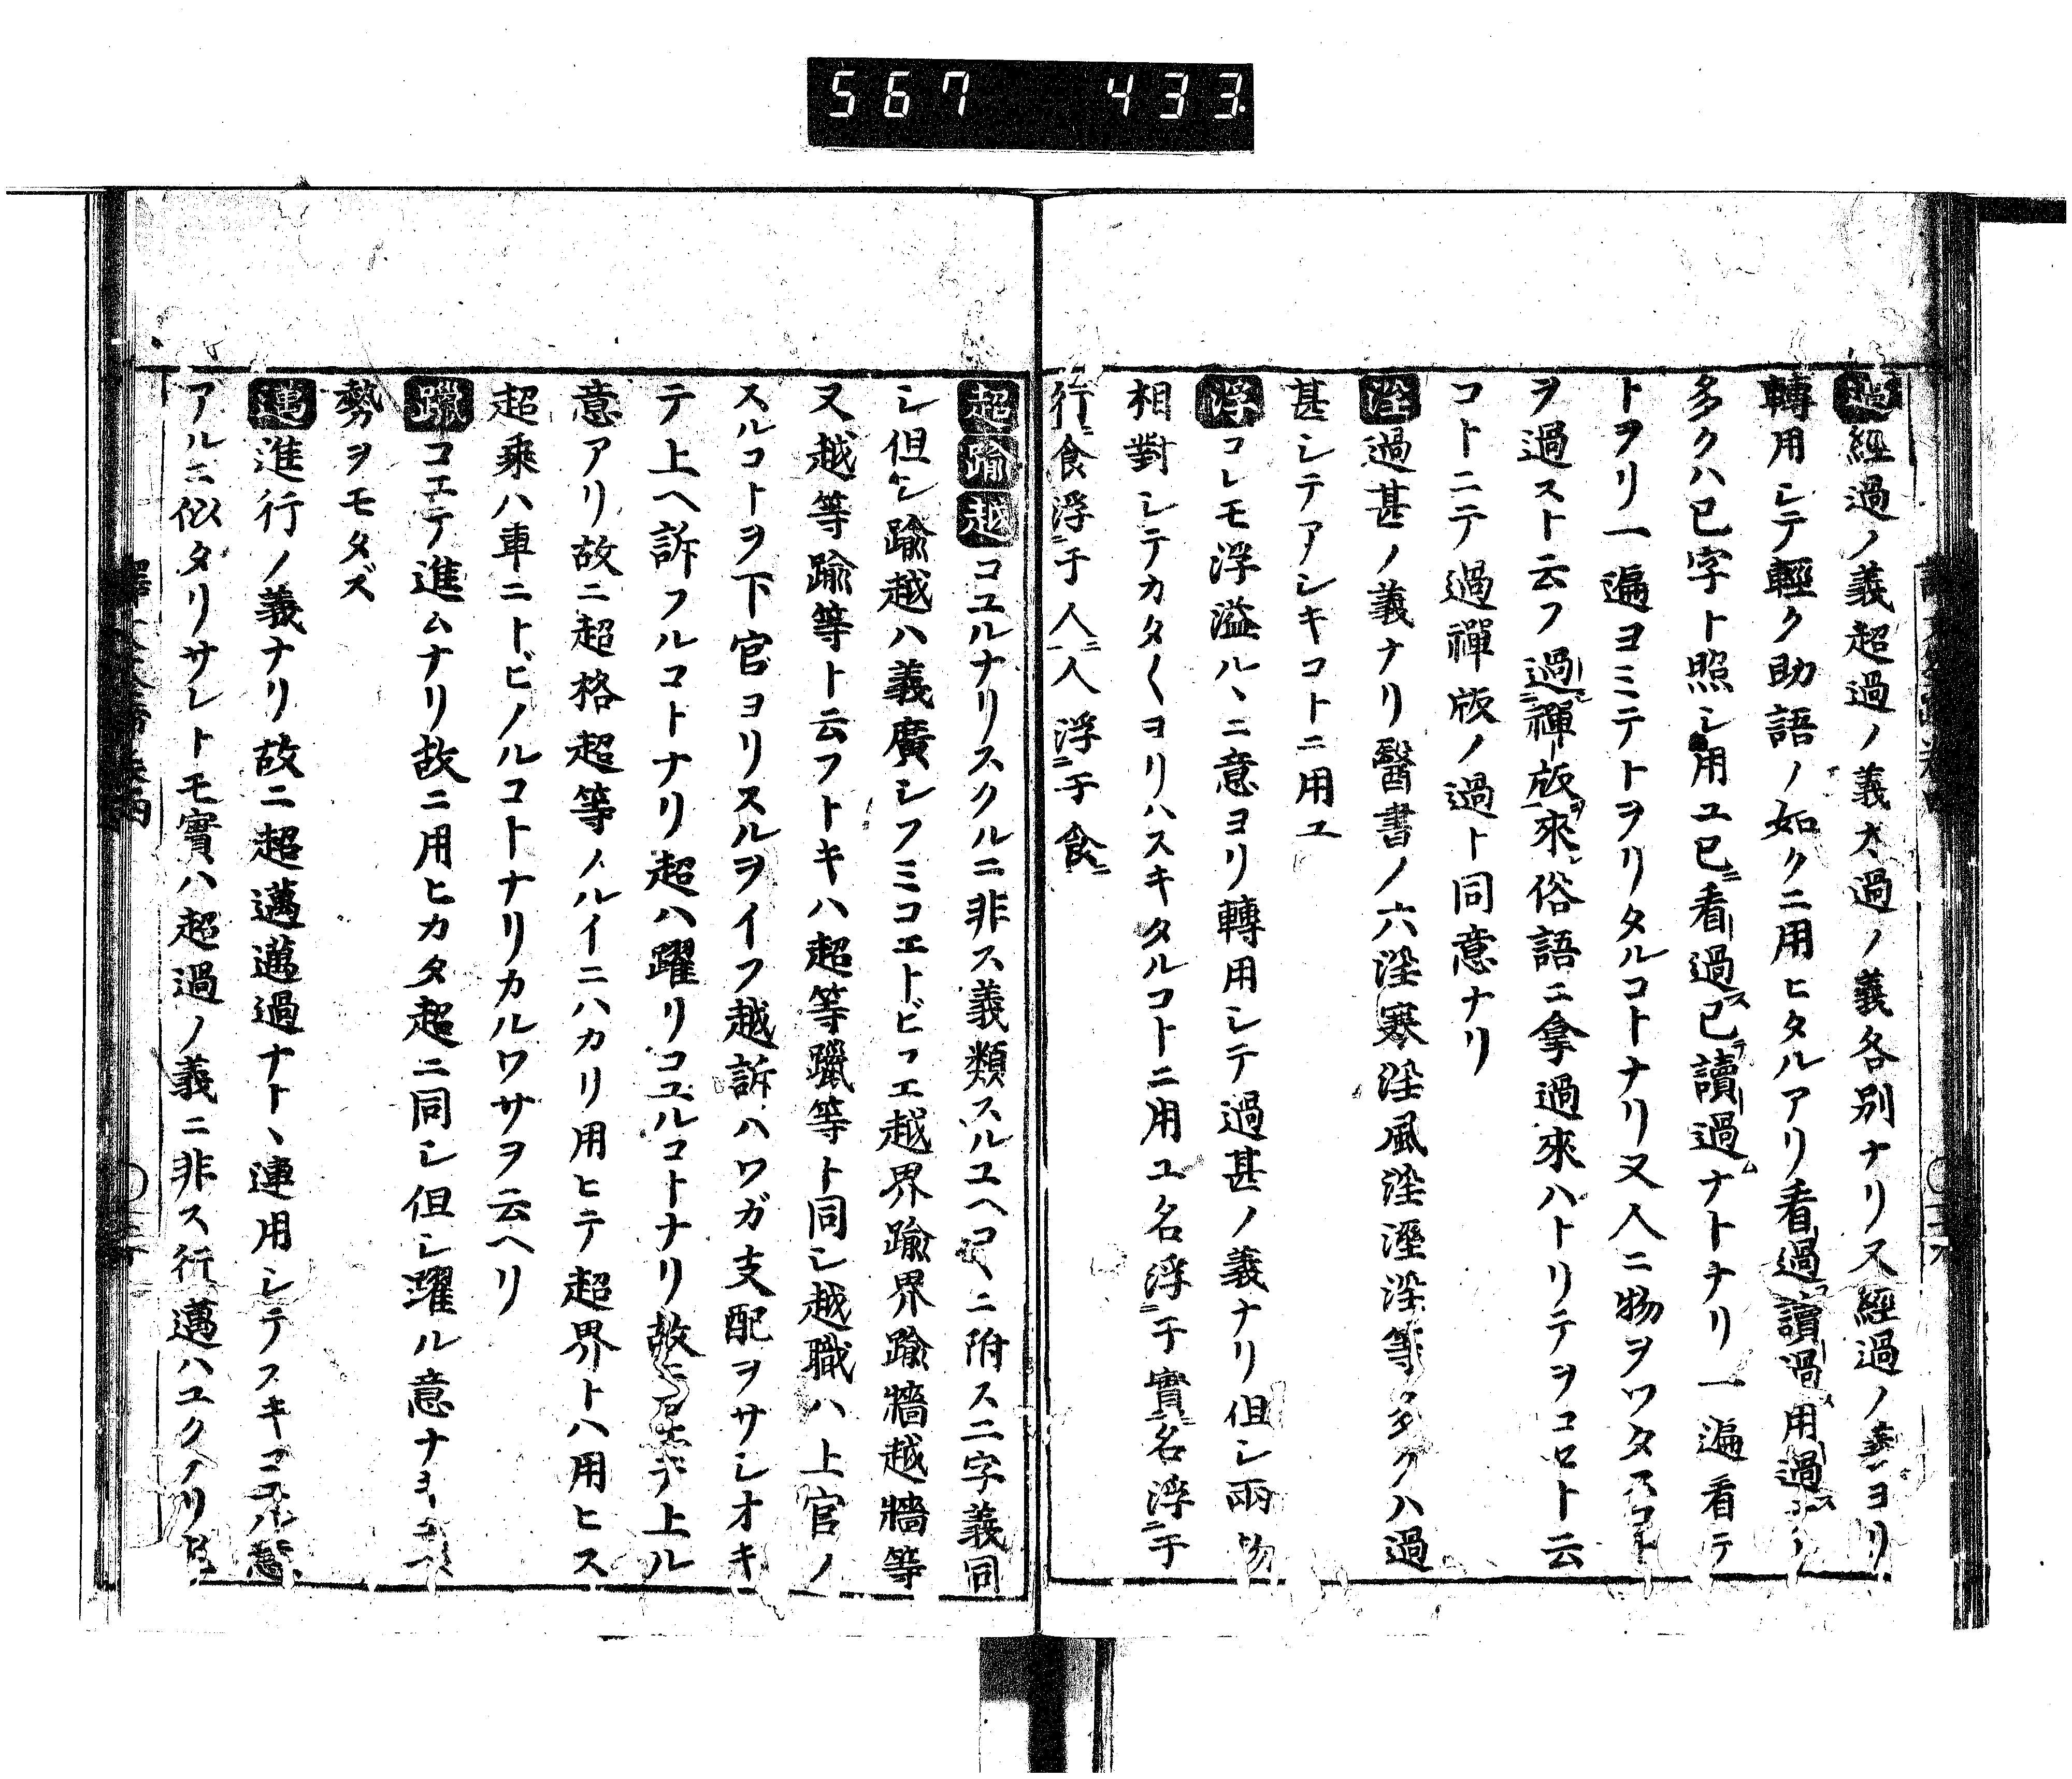 567 433
過經過ノ義超過ノ義太過ノ義各別ナリ又經過ノ義ヨリ
轉用シテ輕ク助語ノ如クニ用ヒタルアリ看過讀過用過
多クハ已字ト照シ用ユ已看過已讀過ナトナリ一遍看テ
トヲリ一遍ヨミテトヲリタルコトナリ又人ニ物ヲワタスコト
ヲ過スト云フ過禪版來俗語ニ拿過來ハトリテヲコロト云
コトニテ過禪版ノ過ト同意ナリ
淫過甚ノ義ナリ醫書ノ六淫寒淫風淫溼淫等多クハ過
甚シテアシキコトニ用ユ
浮コレモ浮溢ル、ニ意ヨリ轉用シテ過甚ノ義ナリ但シ兩物
相對シテカタ〱ヨリハスキタルコトニ用ユ名浮于實名浮于
行食浮于人人浮于食
超踰越コユルナリスクルニ非ス義類スルユヘコヽニ附ス二字義同
シ但シ踰越ハ義廣シフミコエトビコエ越界踰界踰牆越牆等
又越等踰等ト云フトキハ超等躐等ト同シ越職ハ上官ノ
スルコトヲ下官ヨリスルヲイフ越訴ハワガ支配ヲサシオキ
テ上ヘ訴フルコトナリ超ハ躍リコユルコトナリ故ニコエテ上ル
意アリ故ニ超格超等ノルイニハカリ用ヒテ超界トハ用ヒス
超乘ハ車ニトビノルコトナリカルワサヲ云ヘリ
躐コエテ進ムナリ故ニ用ヒカタ超ニ同シ但シ躍ル意ナ
勢ヲモタズ
邁進行ノ義ナリ故ニ超邁邁過ナト、連用シテスキコユル意
アルニ似タリサレトモ實ハ超過ノ義ニ非ス行邁ハユクナリ